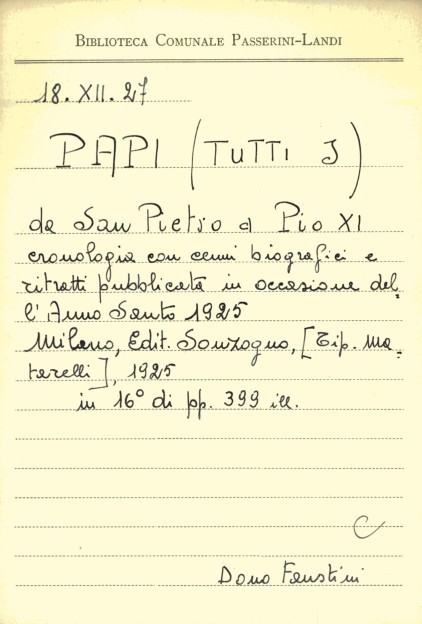 BIBLIOTECA COMUNALE PASSERINI-LANDI
18. XII. 27
PAPI (TUTTI I)
da San Pietro a Pio XI
cronologia con cenni biografici e
ritratti pubblicata in occasione del-
l'Anno Santo 1925
Milano, Edit. Sonzogno, [Tip. Ma-
tarelli], 1925
in 16° di pp. 399 ill.
C
Dono Faustini